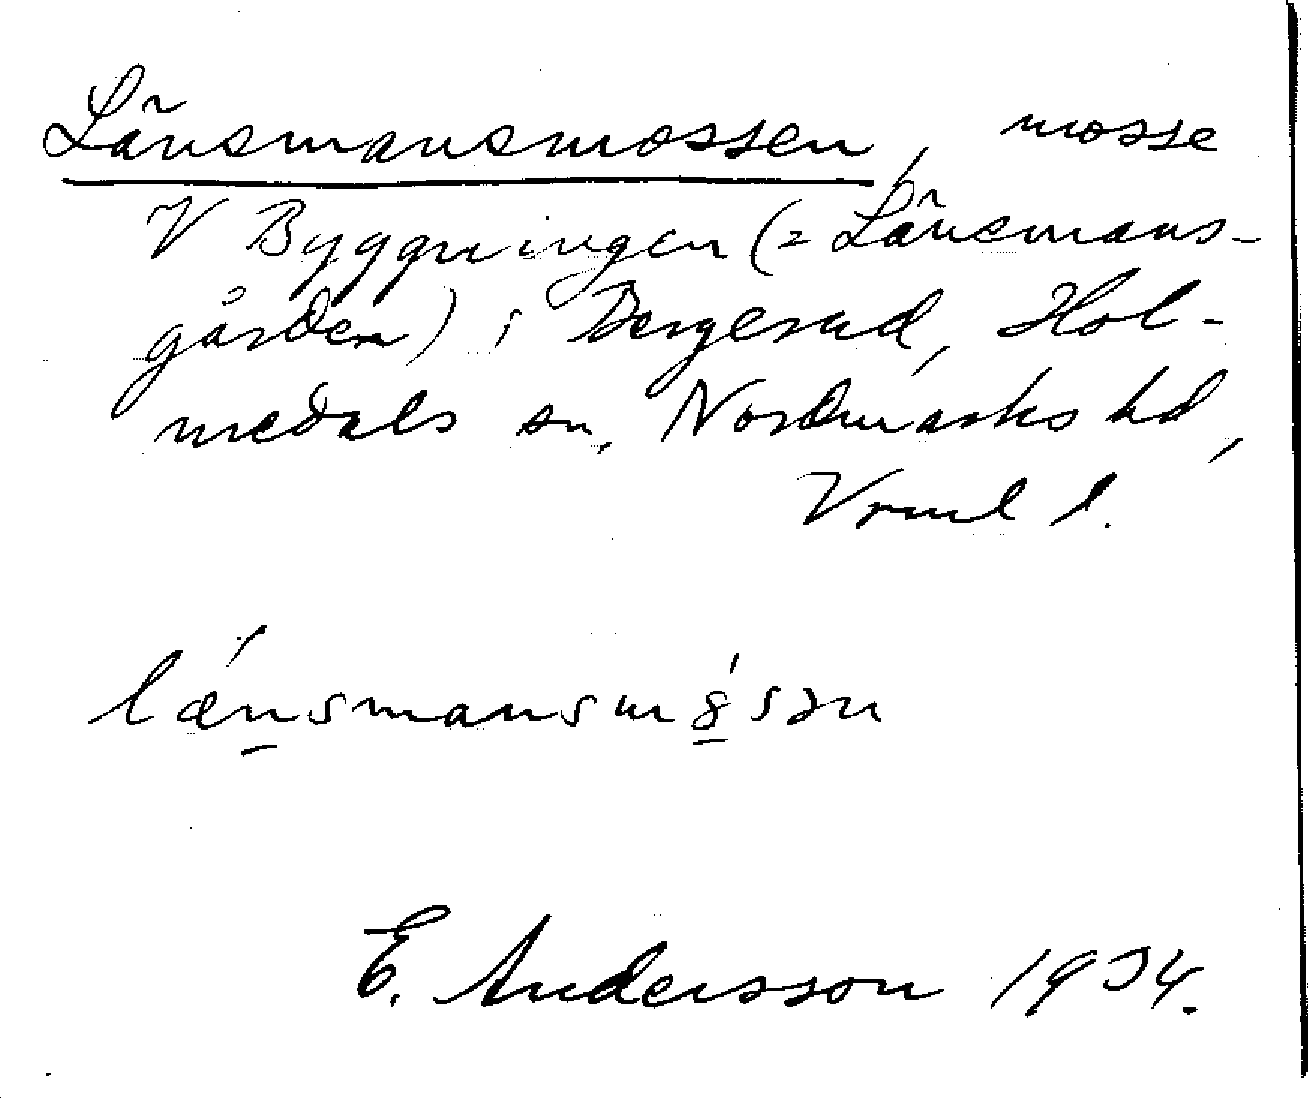 Länsmansmossen, mosse
V Byggningen (= Länsmans-
gården) i Bergerud, Hol-
medals sn, Nordmarks hd,
Vrml l.
lǽnsmansmǫ̀sən
E. Andersson 1934.